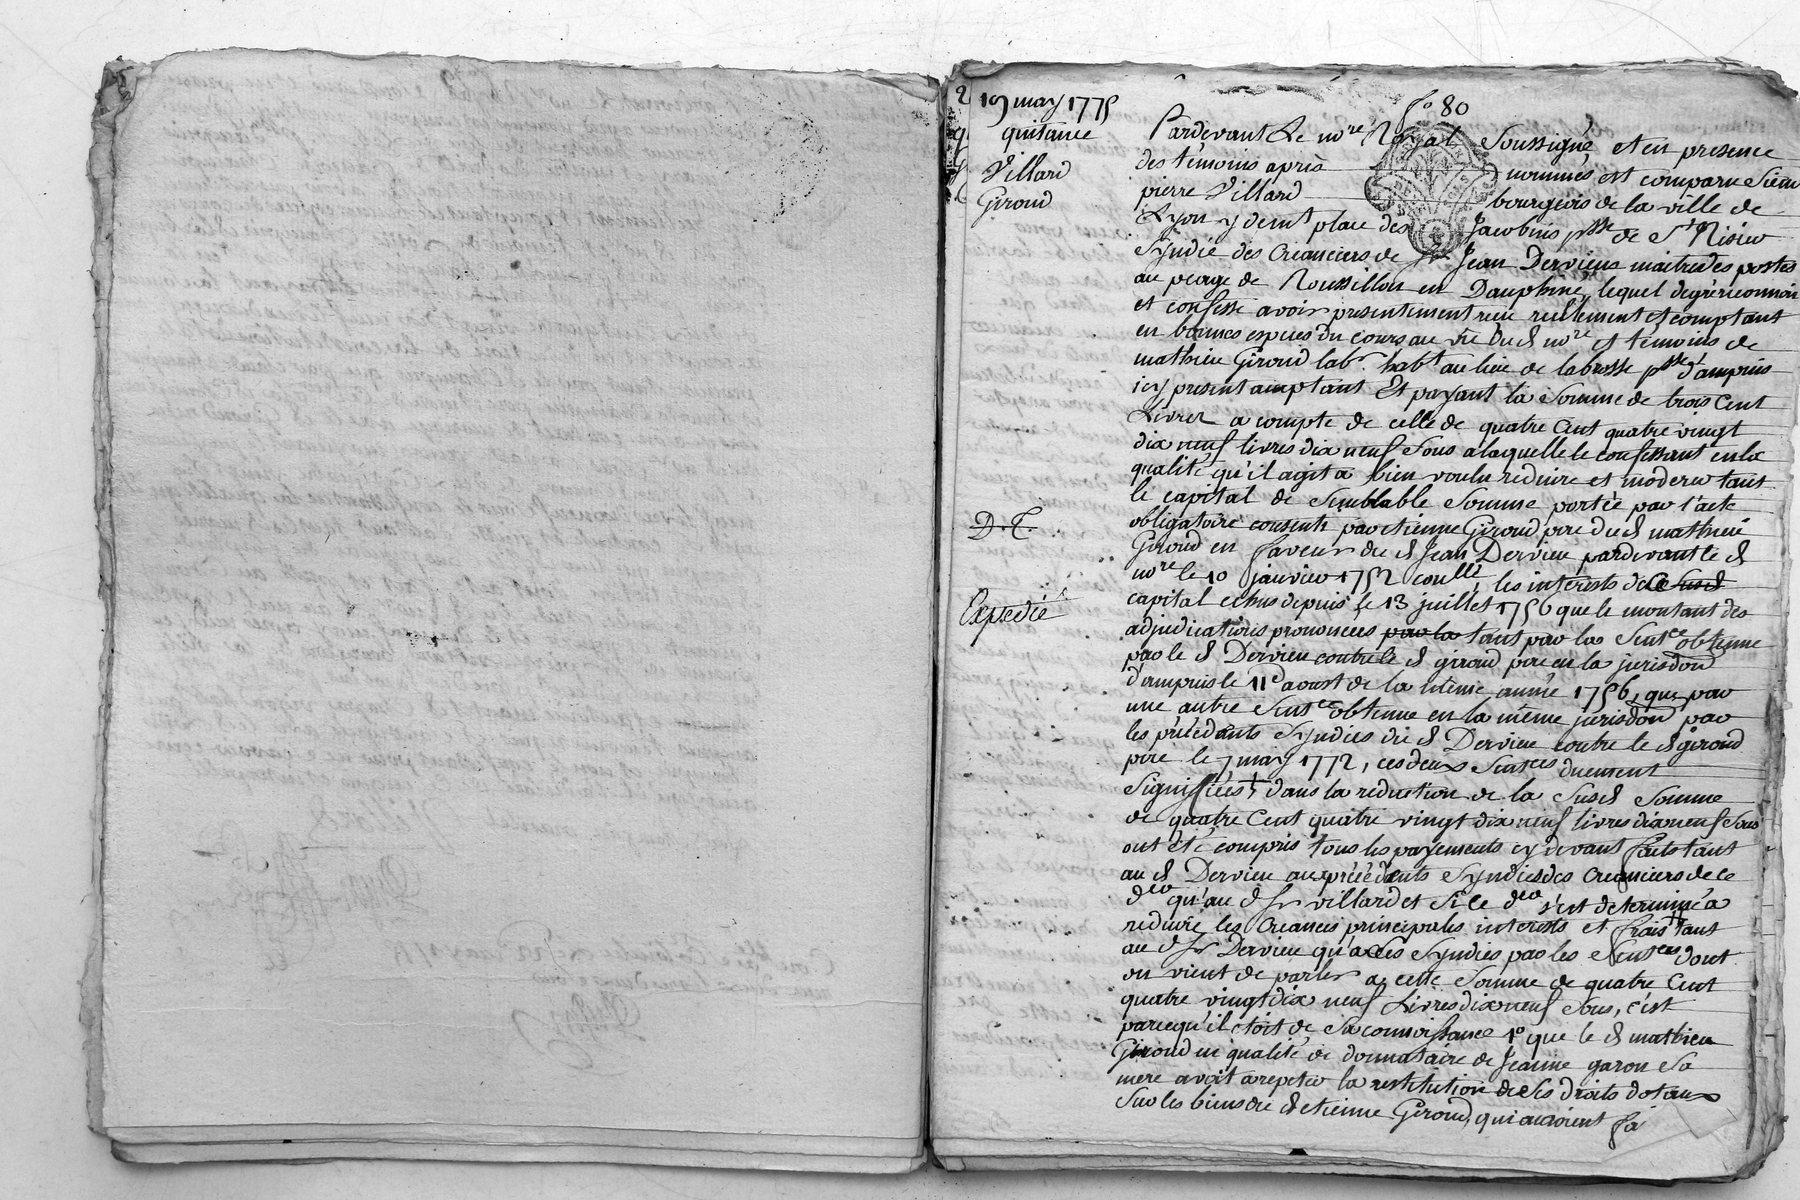 19 may 1775
quitance
Villard
Giroud
D. C.
Expedié
fo 80
Pardevant Le nore Royal Soussigné et en presence
des témoins après nommés est comparu Sieur
pierre Villard bourgeois de la ville de
Lyon y demt place des Jacobins psse de St Nisiew
Syndic des Creanciers de Sr Jean Dervieu maitre des postes
au peage de Roussillon en Dauphiné, lequel de gré reconnoit
et confesse avoir presentement reçu réelement et comptant
en bonnes espèces du cours au vû du d nore et témoins de
mathieu Giroud labr habt au lieu de labrosse psse d'ampuis
icy present acceptant Et payant la Somme de trois Cent
Livres a compte de celle de quatre Cent quatre vingt
dix neuf livres dix neuf Sous a laquelle le confessant en la
qualité qu'il agit a bien voulu reduire et moderer tant
le capital de Semblable Somme portée par l'acte
obligatoire consenti par etienne Giroud pere du d mathieu
Giroud en faveur du d Jean Dervieu pardevant le d
nore le 10 janvier 1752 conllé, les interests de Ce Susd
capital echus depuis le 13 juillet 1756 que le montant des
adjudications prononcées par la tant par la Sentce obtenue
par le d Dervieu contre le d giroud pere en la jurisdon
d'ampuis le 11e aoust de la même année 1756, que par
une autre Sentce obtenue en la même jurisdon par
les précédents Syndics du d Dervieu contre le d giroud
pere le 7 may 1772, ces deux Sentces duement
Signifiées, dans la reduction de la Susd Somme
de quatre Cent quatre vingt dix neuf livres dix neuf Sous
ont été compris tous les payements cy devant faits tant
au d Dervieu aux précédents Syndics des Creanciers de ce
der qu'au d Sr villard et Si le der s'est determiné a
reduire les Creances principales interests et frais tant
au d Sr Dervieu qu'a Ses Syndics par les Sentces dont
on vient de parler a cette Somme de quatre Cent
quatre vingt dix neuf Livres dix neuf Sous, c'est
parcequ'il étoit de Sa connoissance 1o que le d mathieu
Giroud en qualité de donnataire de Jeanne garon Sa
mere avoit a repeter la restitution de Ses droits dotaux
Sur les biens du d etienne Giroud, qui auroient fa